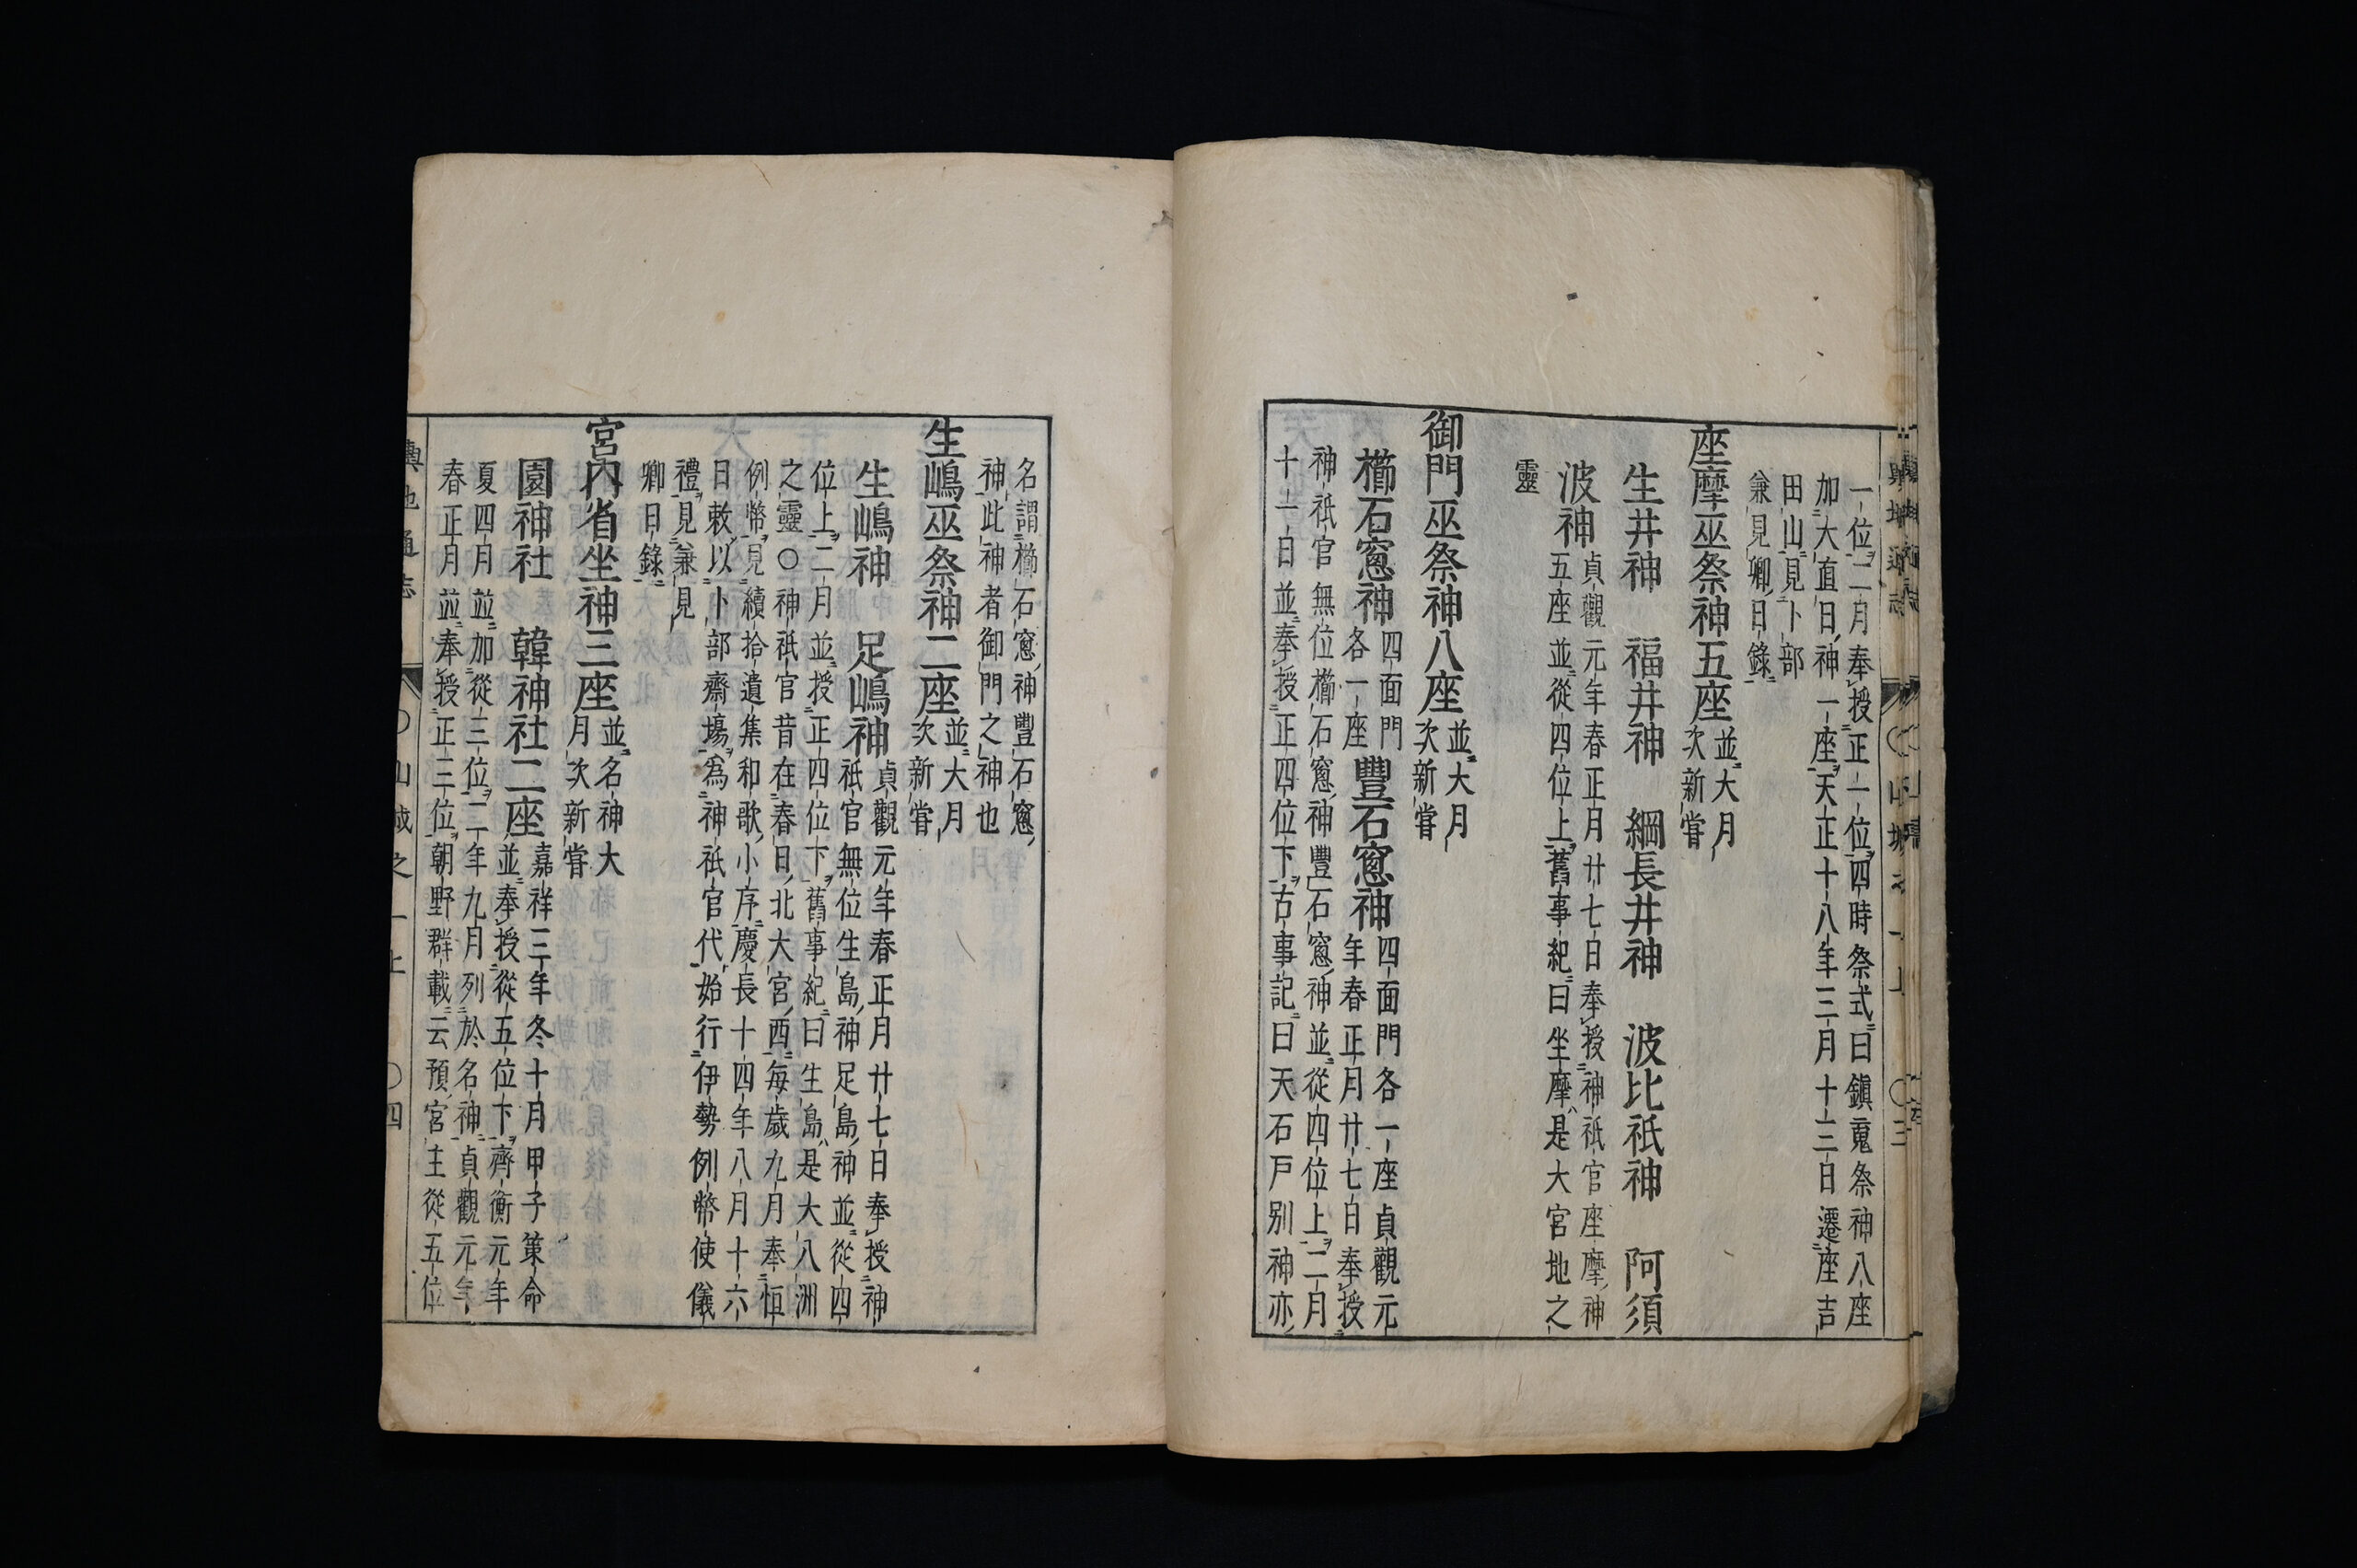 一位二月奉授正一位四時祭式曰鎭䰟祭神八座
加大直日神一座天正十八年三月十三日遷座吉
田山見卜部
兼見卿日錄
座摩巫祭神五座並大月
次新嘗
生井神 福井神 綱長井神 波比祇神 阿須
波神貞觀元年春正月廿七日奉授神祇官座摩神
五座並從四位上舊事紀曰坐摩是大宮地之
靈
御門巫祭神八座並大月
次新嘗
櫛石窓神四面門
各一座
豐石窓神四面門各一座貞觀元
年春正月廿七日奉授
神祇官無位櫛石窓神豐石窓神並從四位上二月
十一日並奉授正四位下古事記曰天石戸別神亦
名謂櫛石窓神豐石窓
神此神者御門之神也
生嶋巫祭神二座並大月
次新嘗
生嶋神 足嶋神貞觀元年春正月廿七日奉授神
祇官無位生島神足島神並從四
位上二月並授正四位下舊事紀曰生島是大八洲
之靈○神祇官昔在春日北大宮西每歲九月奉恒
例幣見續拾遺集和歌小序慶長十四年八月十六
日敕以卜部齋場爲神祇官代始行伊勢例幣使儀
禮見兼見
卿日錄
宮內省坐神三座並名神大
月次新嘗
園神社 韓神社二座嘉祥三年冬十月甲子策命
並奉授從五位下齊衡元年
夏四月並加從三位二年九月列於名神貞觀元年
春正月並奉授正三位朝野群載云預宮主從五位
輿地通志 ○山城之一上 ○四